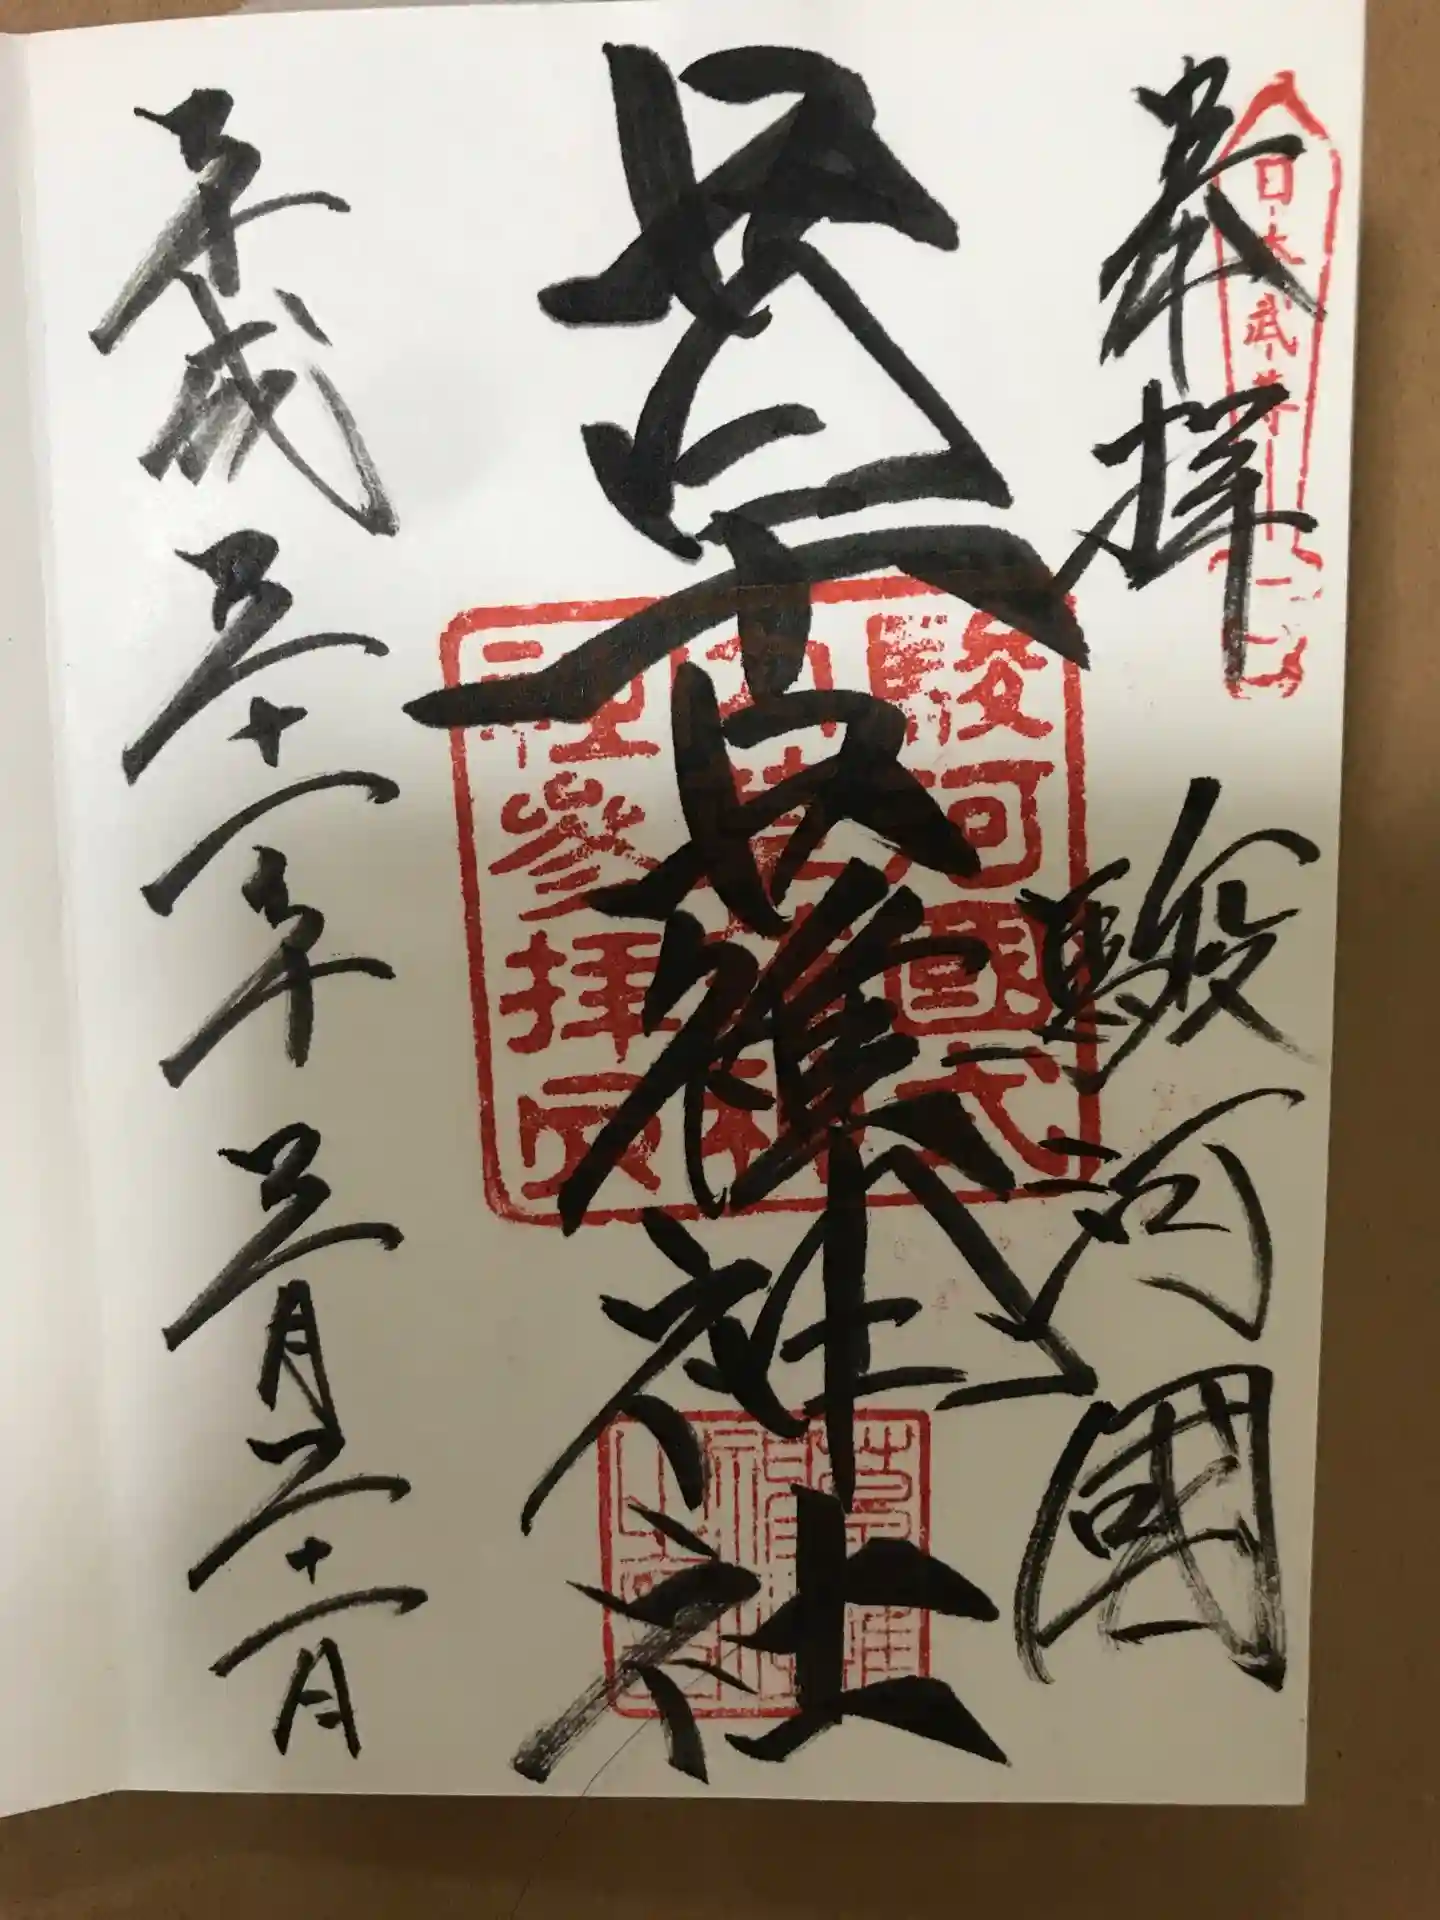 奉拝
日本武尊
駿河國
草薙神社
駿河國式
内草薙神
社參拝印
平成三十一年三月二十一日